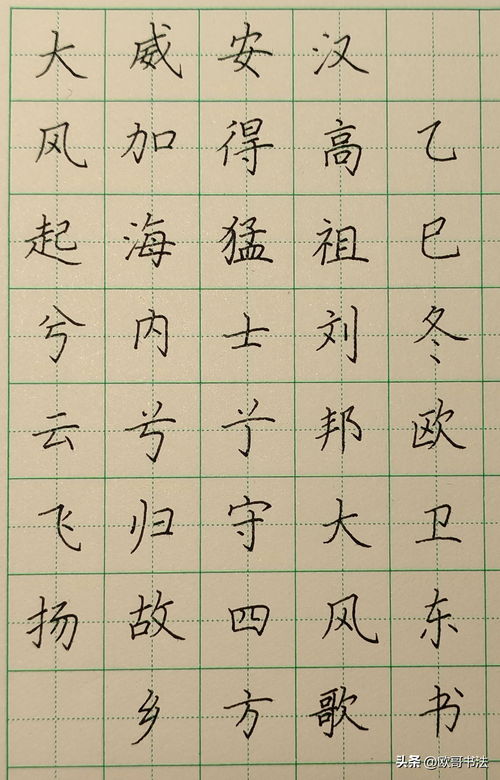 大风起兮云飞扬
威加海内兮归故乡
安得猛士兮守四方
汉高祖刘邦大风歌
乙巳冬欧卫东书
头条 @欧哥书法